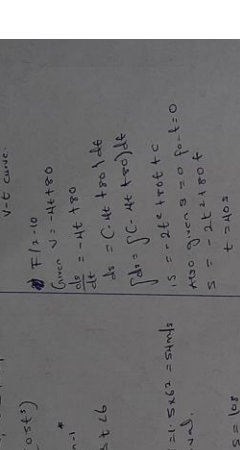 v-t curve.
F12-10
Given v = -4t+80
ds/dt = -4t +80
ds = (-4t +80) dt
∫ds = ∫(-4t +80) dt
s = -2t² +80t + C
Also given s = 0 for t = 0
s = -2t² + 80t
t = 40s
n-1
t <6
= 1.5x6² = 54m/s
s = 108